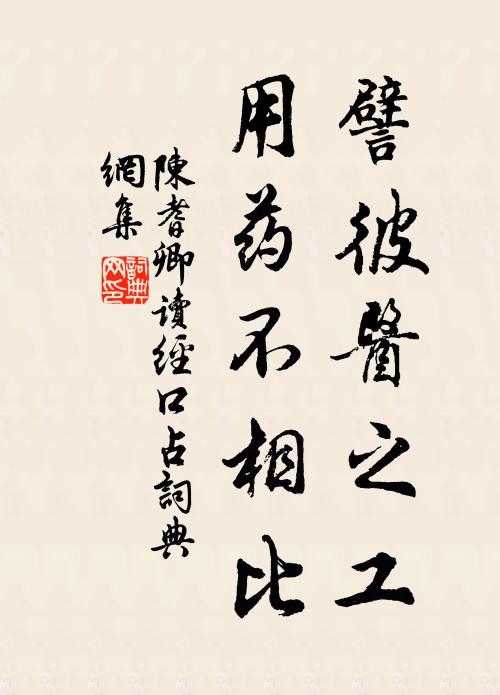 譬彼醫之工
用药不相比
陳耆卿讀經口占詞典
網集
詞典
网印